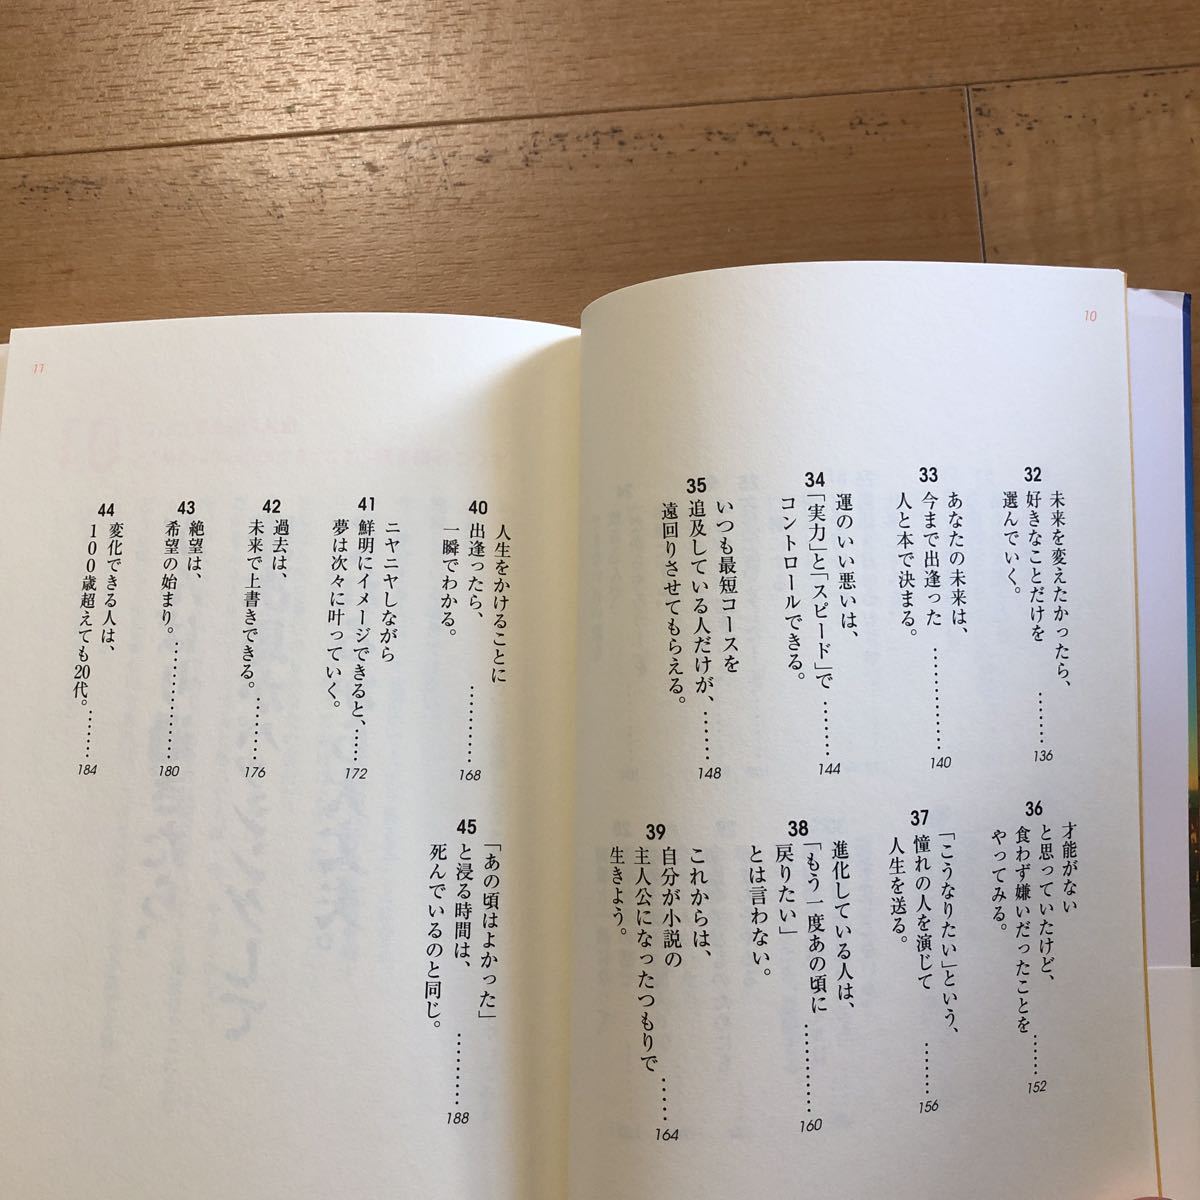 10
32
未来を変えたかったら、
好きなことだけを
選んでいく。
………… 136
33
あなたの未来は、
今まで出逢った
人と本で決まる。
………… 140
34
運のいい悪いは、
「実力」と「スピード」で
コントロールできる。
……… 144
35
いつも最短コースを
追及している人だけが、
遠回りさせてもらえる。
…… 148
36
才能がない
と思っていたけど、
食わず嫌いだったことを
やってみる。
……… 152
37
「こうなりたい」という、
憧れの人を演じて
人生を送る。
……… 156
38
進化している人は、
「もう一度あの頃に
戻りたい」
とは言わない。
………… 160
39
これからは、
自分が小説の
主人公になったつもりで
生きよう。
…… 164
11
40
人生をかけることに
出逢ったら、
一瞬でわかる。
……… 168
41
ニヤニヤしながら
鮮明にイメージできると、
夢は次々に叶っていく。
…… 172
42
過去は、
未来で上書きできる。
……… 176
43
絶望は、
希望の始まり。
………… 180
44
変化できる人は、
100歳超えても20代。
……… 184
45
「あの頃はよかった」
と浸る時間は、
死んでいるのと同じ。
……… 188